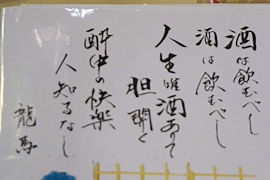 酒は飲むべし
酒は飲むべし
人生唯酒ありて
胆開く
酔中の快楽
人知るなし
龍馬